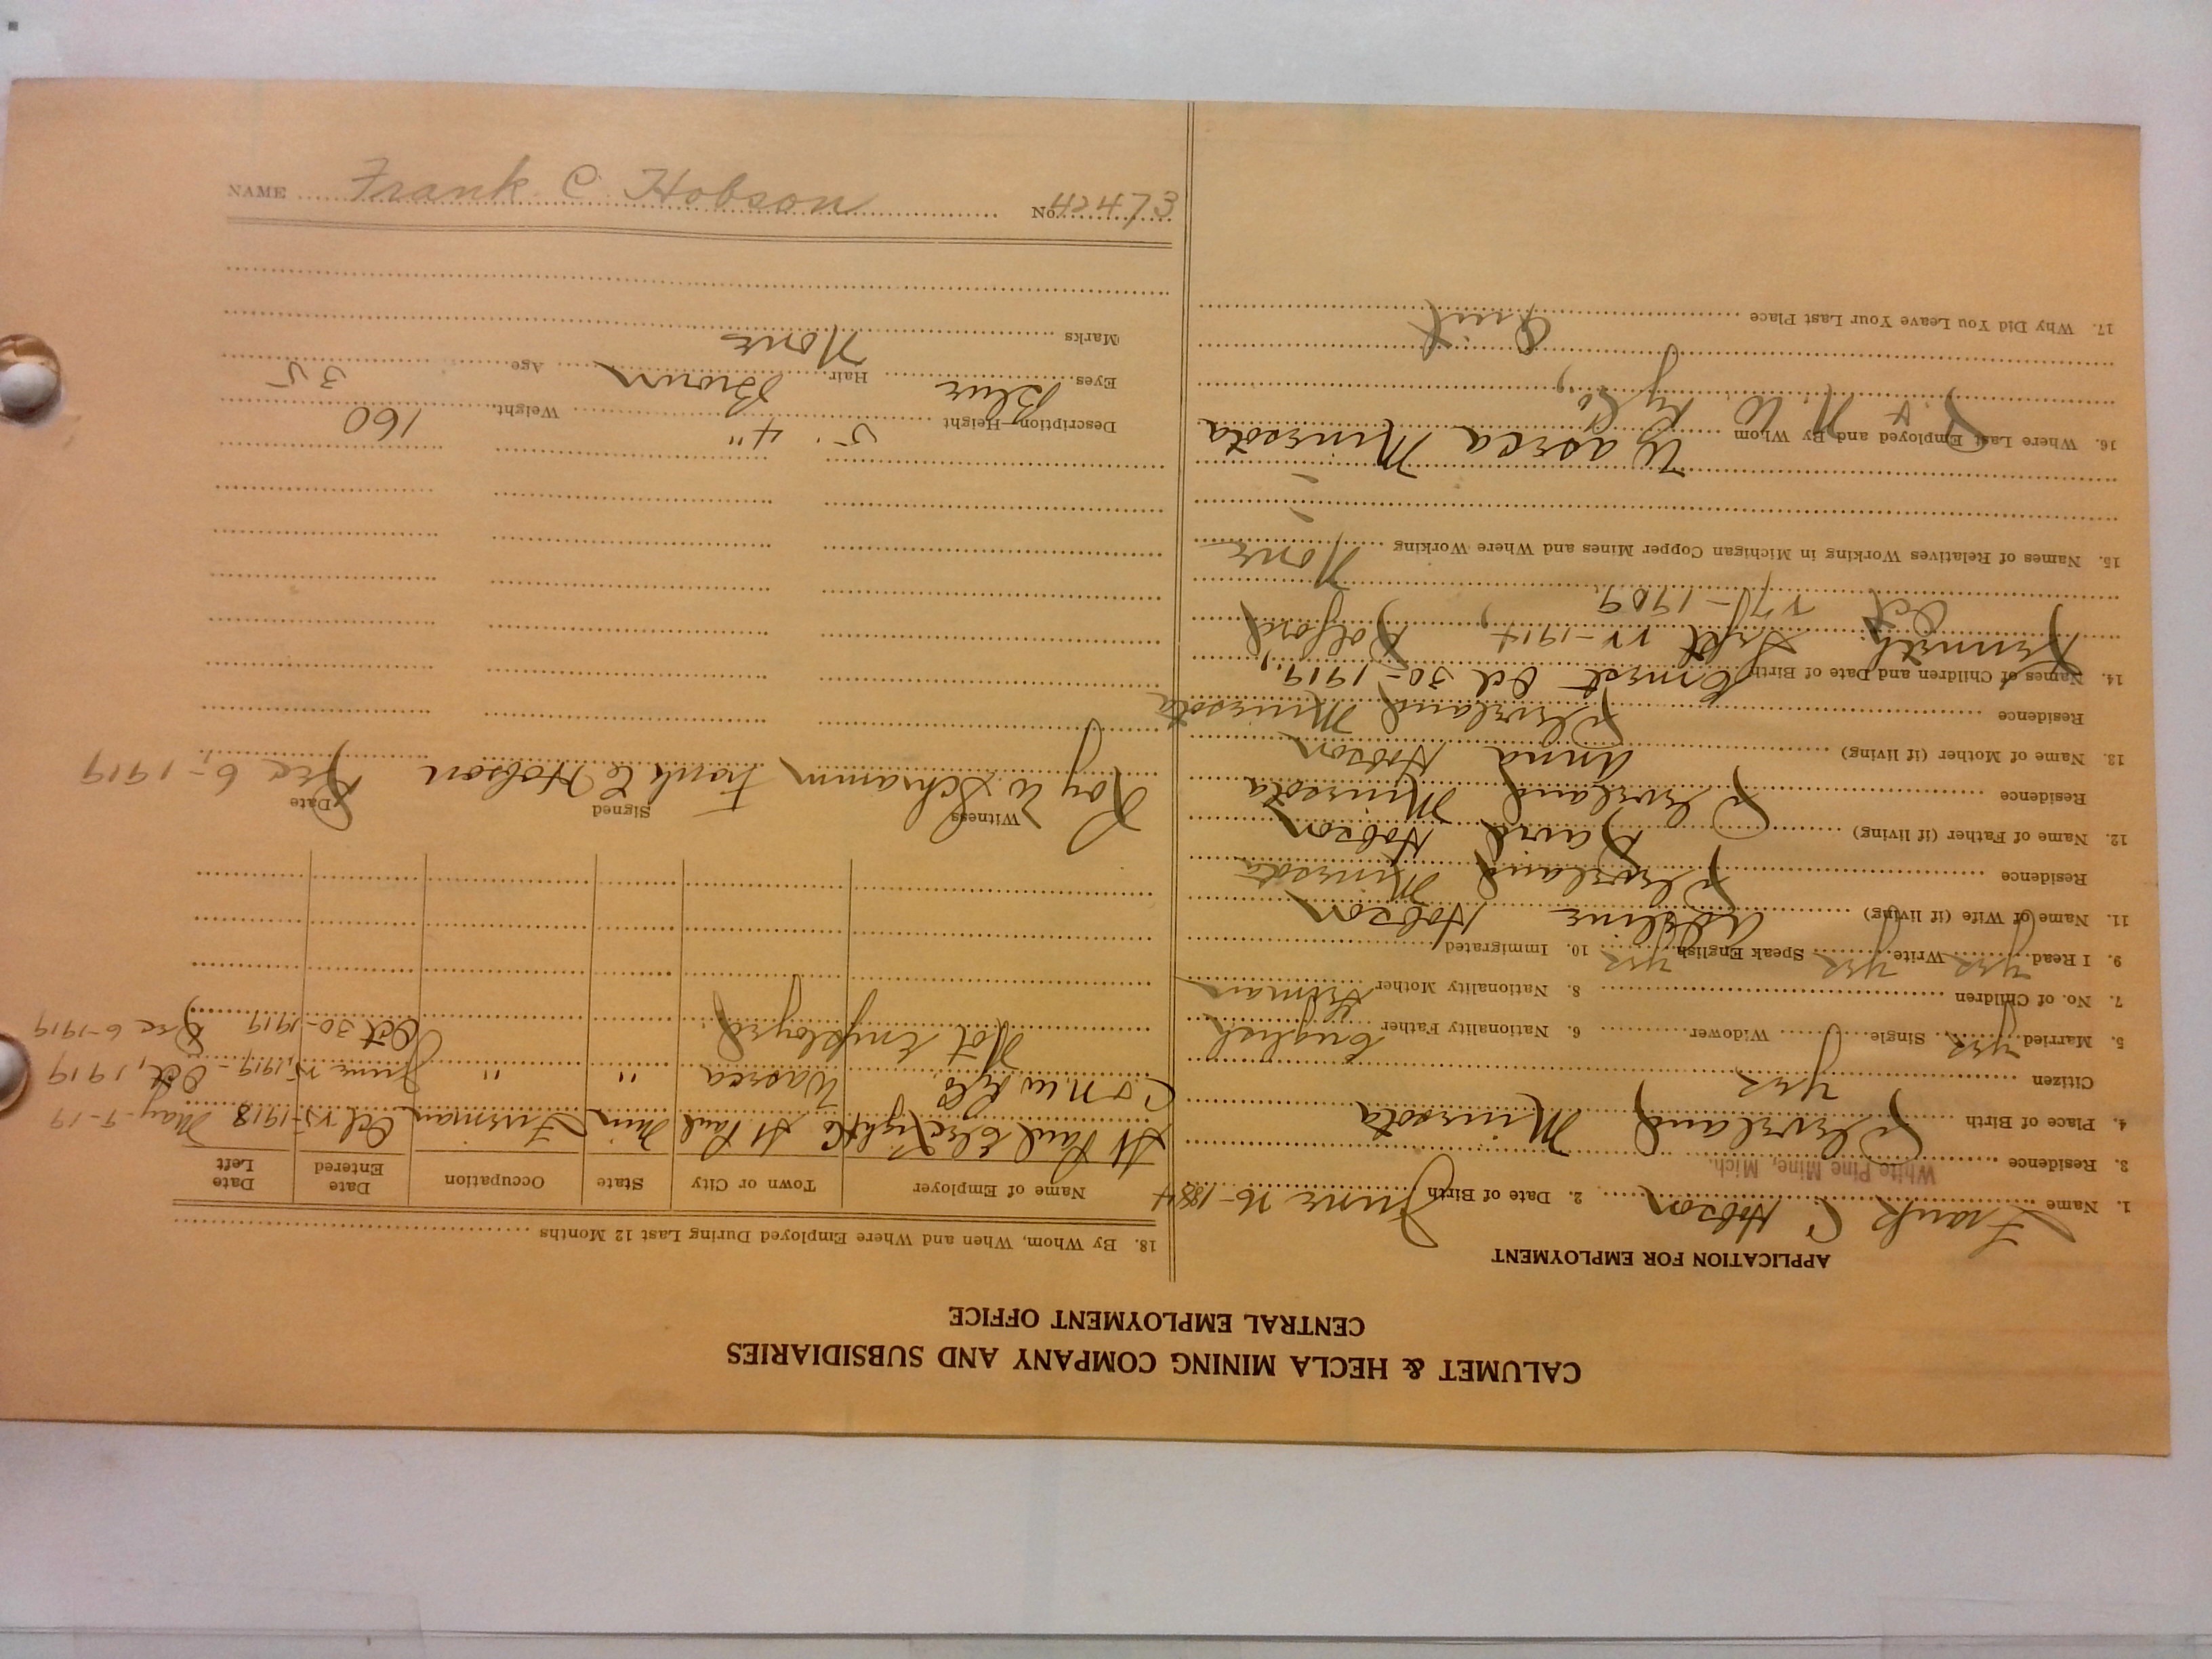 CALUMET & HECLA MINING COMPANY AND SUBSIDIARIES
CENTRAL EMPLOYMENT OFFICE
APPLICATION FOR EMPLOYMENT
1. Name Frank C. Hobson 2. Date of Birth June 16-1884
White Pine Mine, Mich.
3. Residence
4. Place of Birth Cleveland Minesota
Citizen Yes
5. Married yes Single Widower 6. Nationality Father English
7. No. of Children 8. Nationality Mother German
9. I Read yes Write yes Speak English yes 10. Immigrated
11. Name of Wife (if living) Adeline Hobson
Residence Cleveland Minesota
12. Name of Father (if living) David Hobson
Residence Cleveland Minesota
13. Name of Mother (if living) Anna Hobson
Residence Cleveland Minesota
14. Names of Children and Date of Birth Ernest Oct 30-1919,
Kenneth Sept 22-1914,
Oct 1909
15. Names of Relatives Working in Michigan Copper Mines and Where Working None
16. Where Last Employed and By Whom Waseca Minesota
C. & N. W Ry Co.,
17. Why Did You Leave Your Last Place Quit
18. By Whom, When and Where Employed During Last 12 Months
Name of Employer Town or City State Occupation Date Entered Date Left
St Paul Elec Light Co St Paul Min Fireman Oct 25-1918 May-9-19
C & N. W Ry Co. Waseca " " June 15, 1919- Oct, 1919
Not Employed Oct 30-1919 Dec 6-1919
Witness Signed Date
Roy W. Schramm Frank C Hobson Dec 6,-1919
Description—Height 5' 4" Weight 160
Eyes Blue Hair Brown Age 35
Marks None
NAME Frank C Hobson No. 42473